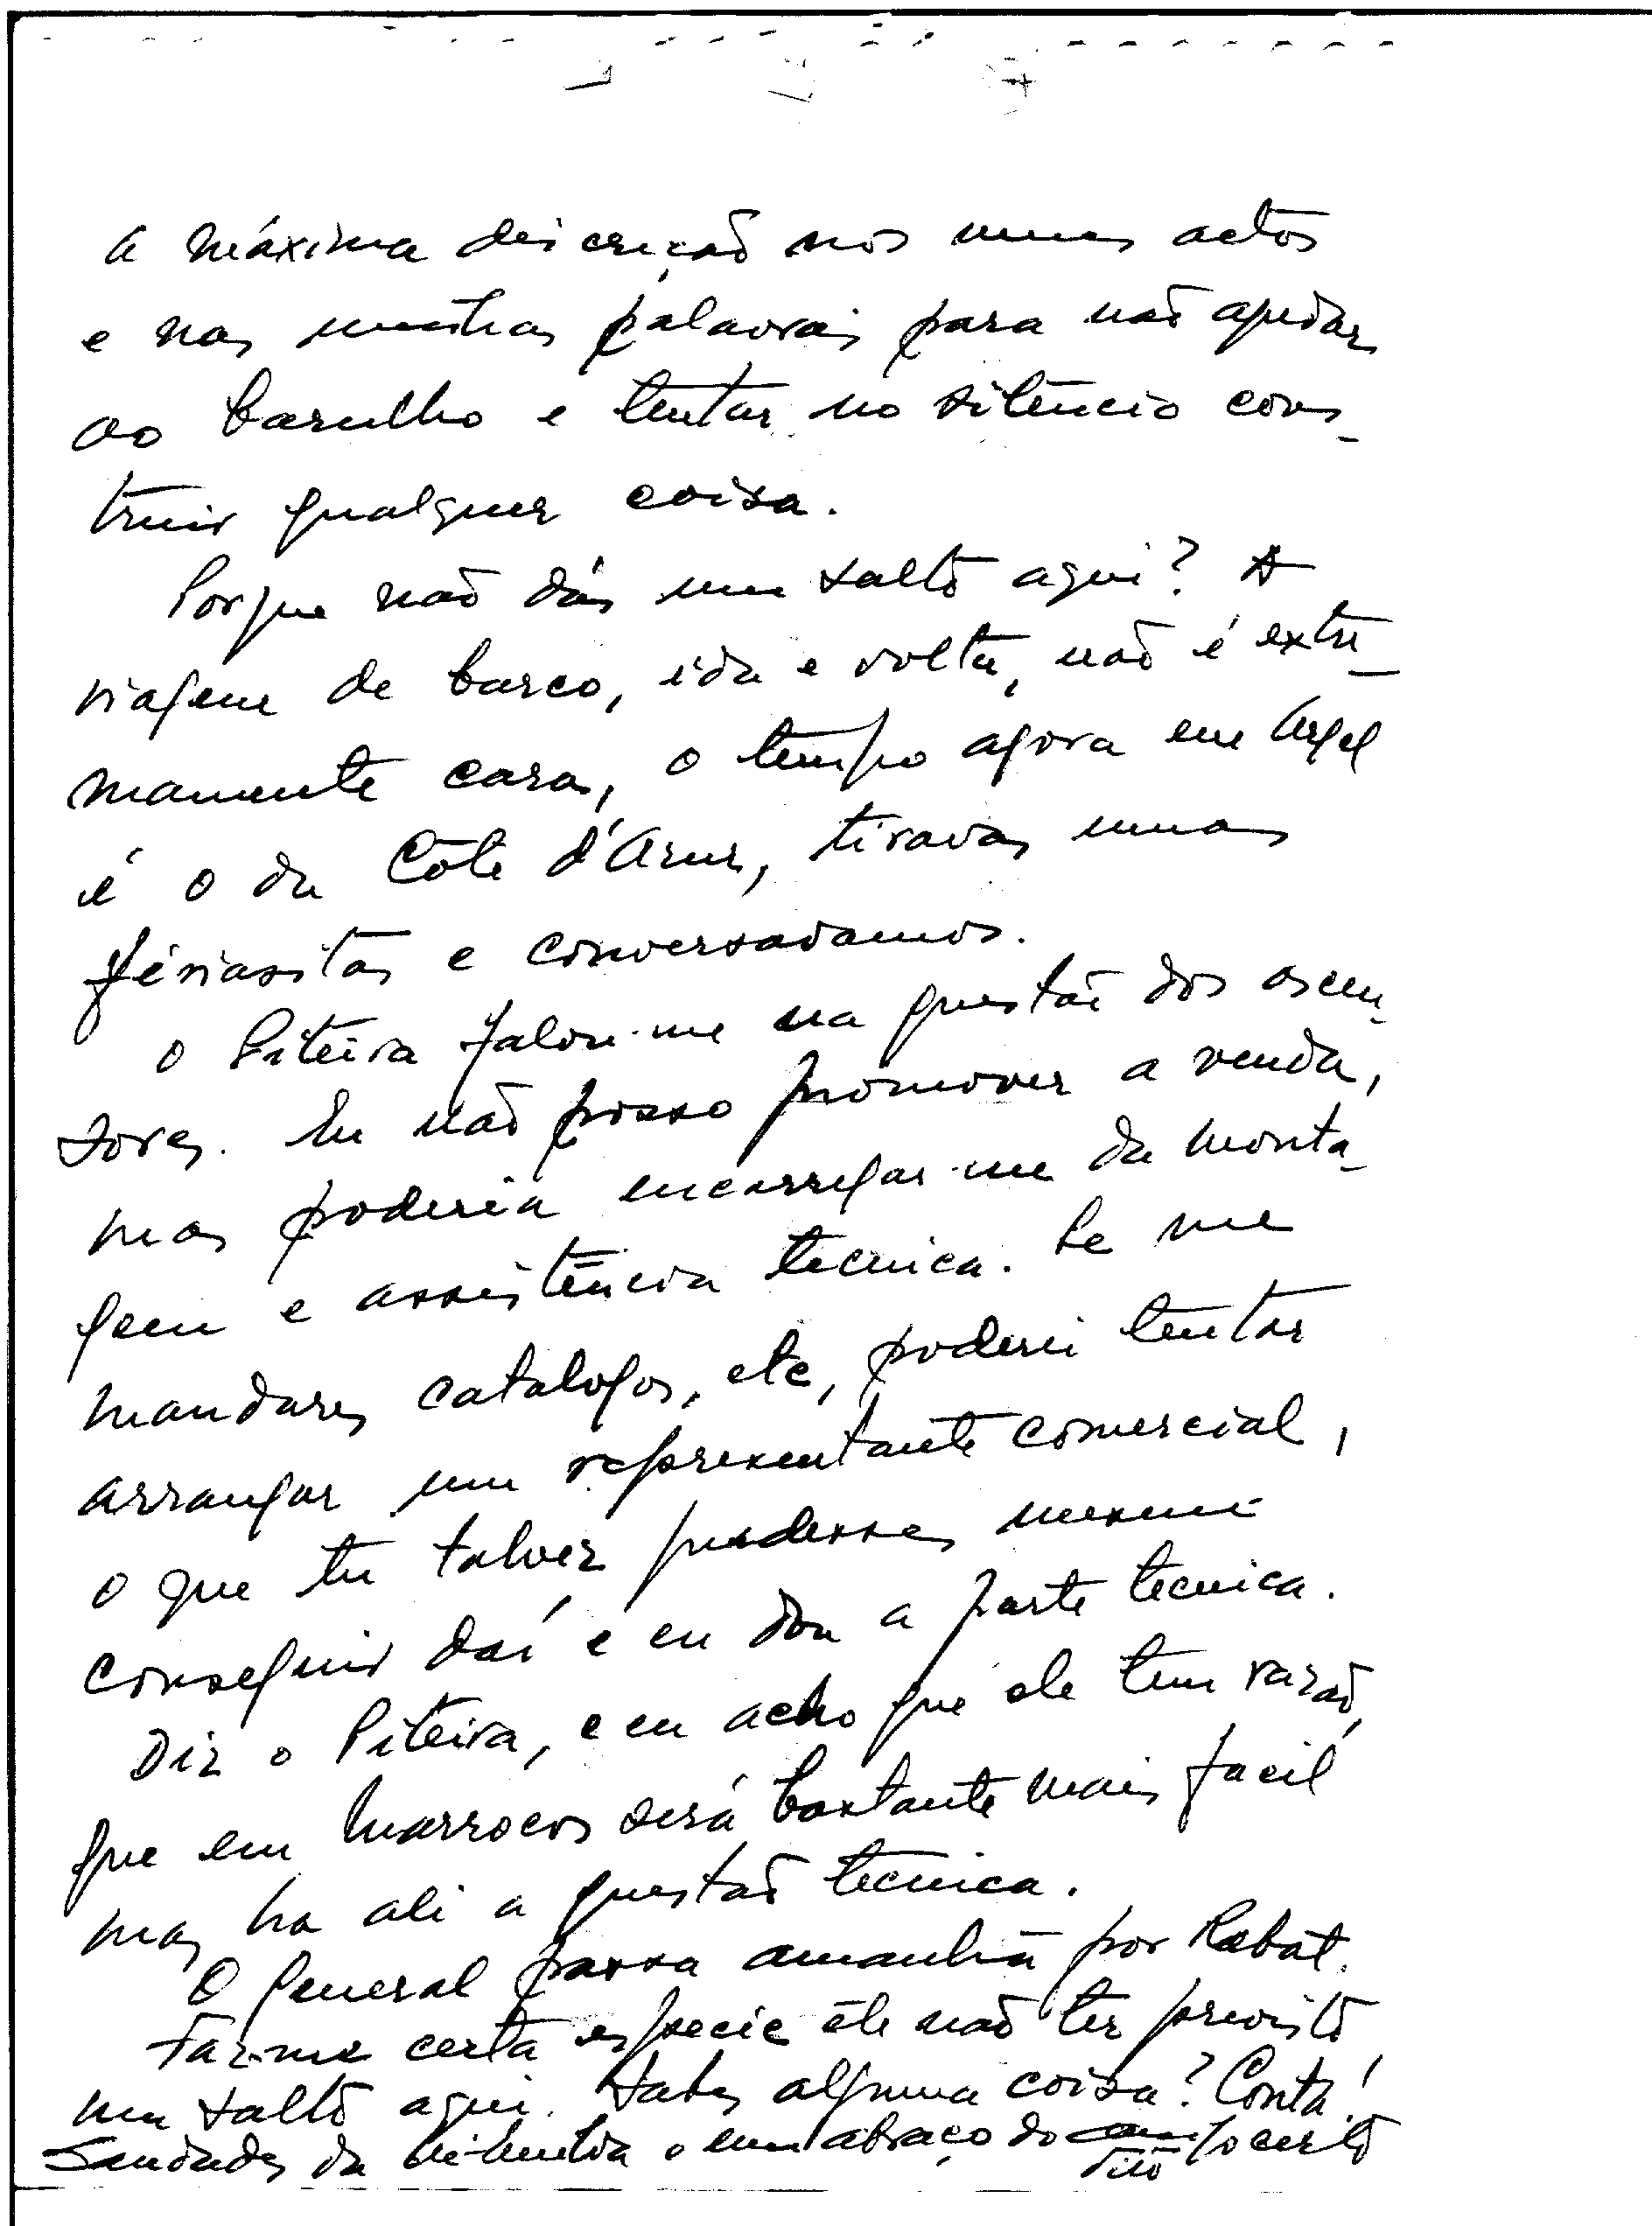 a máxima discrição nos meus actos
e nas minhas palavras para não ajudar
ao barulho e tentar no silêncio cons-
truir qualquer coisa.
Porque não dás um salto aqui? A
viagem de barco, ida e volta, não é extre-
mamente cara, o tempo agora em Argel
é o da Côte d'Azur, tiravas umas
fériasitas e conversavamos.
O Piteira falou-me na questão dos ascen-
sores. Eu não posso promover a venda,
mas poderia encarregar-me da monta-
gem e assistência tecnica. Se me
mandares catalogos, etc, poderei tentar
arranjar um representante comercial,
o que tu talvez pudesses mesmo
conseguir daí e eu dou a parte tecnica.
Diz o Piteira, e eu acho que ele tem razão,
que em Marrocos será bastante mais facil
mas ha ali a questão tecnica.
O General passa amanhã por Rabat.
Faz-me certa especie êle não ter previsto
um salto aqui. Sabes alguma coisa? Conta!
Saudades da e um abraço do